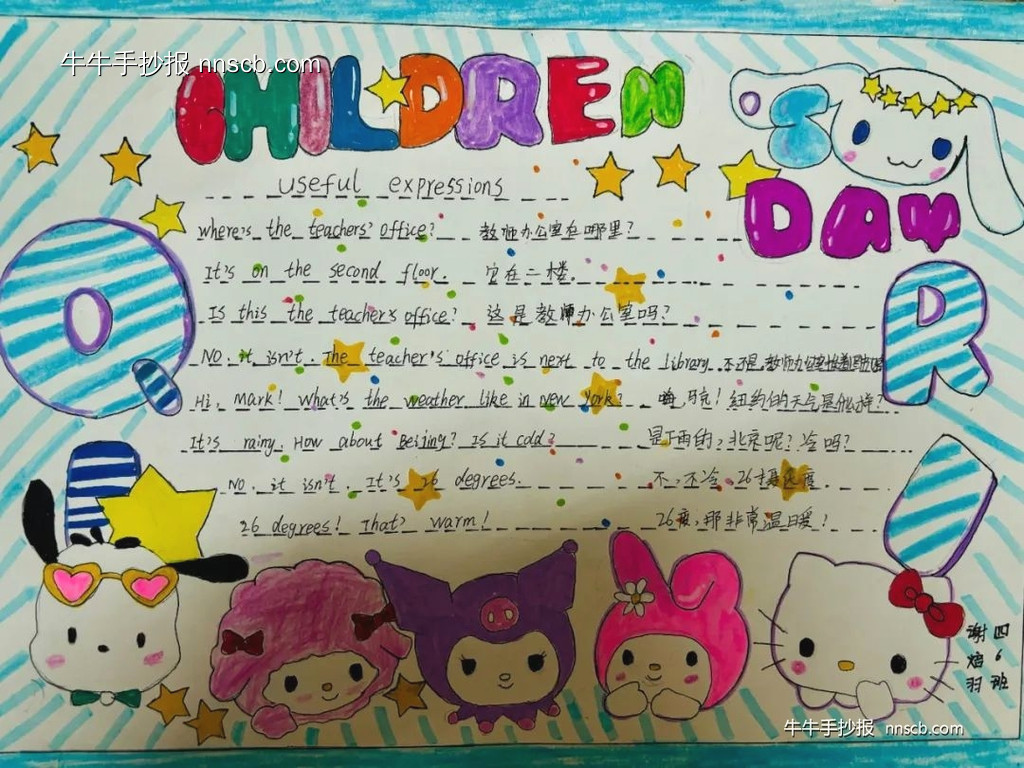 牛牛手抄报 nnscb.com
CHILDREN
S
DAY
useful expressions
where's the teachers' office? 教师办公室在哪里?
It's on the second floor. 它在二楼.
Is this the teacher's office? 这是教师办公室吗?
NO. it isn't. The teacher's office is next to the library. 不,不是,教师办公室
Hi, Mark! what's the weather like in new York? 嗨,马克! 纽约的天气是什么样?
It's rainy. How about Beijing? Is it cold? 是下雨的,北京呢? 冷吗?
NO. it isn't. It's 26 degrees. 不,不冷,26摄氏度.
26 degrees! That's warm! 26度,那非常温暖!
Q
R
四6班
谢焰羽
牛牛手抄报 nnscb.com